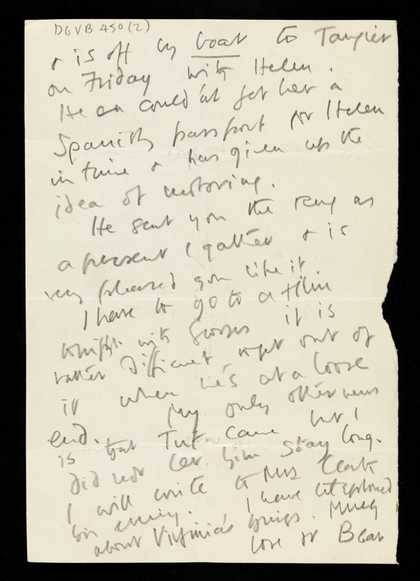 DGVB 450 (2)
& is off by boat to Tangier
on Friday with Helen.
He couldn't get her a
Spanish passport for Helen
in time & has given up the
idea of motoring.
He sent you the as
a present I gather & is
very pleased you like it.
I have to go to a film
tonight with it is
rather difficult to get out of
it when he's at a loose
end. My only other news
is that came but I
did not let him stay long.
I will write to Mrs Clark
this evening. I have telephoned
about Virginia's things. Much
love